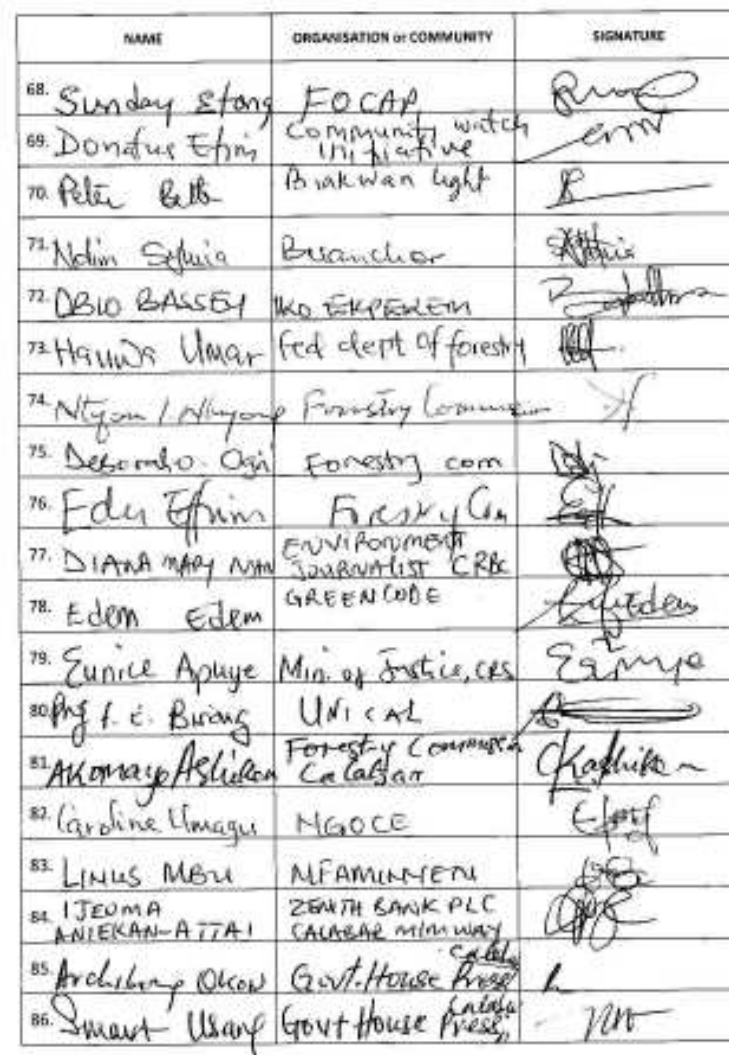 NAME ORGANISATION or COMMUNITY SIGNATURE
68. Sunday Etang FOCAP
69. Donatus Efim Community watch
Initiative
70. Peter Bette Biakwan Light
71. Ndim Sylvia Buanchor
72. OBIO BASSEY IKO EKPEREM
73. Hauwa Umar Fed dept of forestry
74. Forestry
75. Ogri Forestry com
76. Edu Effiom Forestry Com
77. DIANA MARY NSAN ENVIRONMENT
JOURNALIST CRBC
78. Edem Edem GREENCODE
79. Eunice Apuye Min. of Justice, CRS
80. Prof UNICAL
81. Akomaye Forestry Commission
Calabar
82. Caroline Umagu NGOCE
83. LINUS MBU MFAMINYEN
84. IJEOMA ZENITH BANK PLC
ANIEKAN-ATTAI CALABAR
85. Archibong Okon Govt. House Press Calabar
86. Smart Usang Govt House Press, Calabar